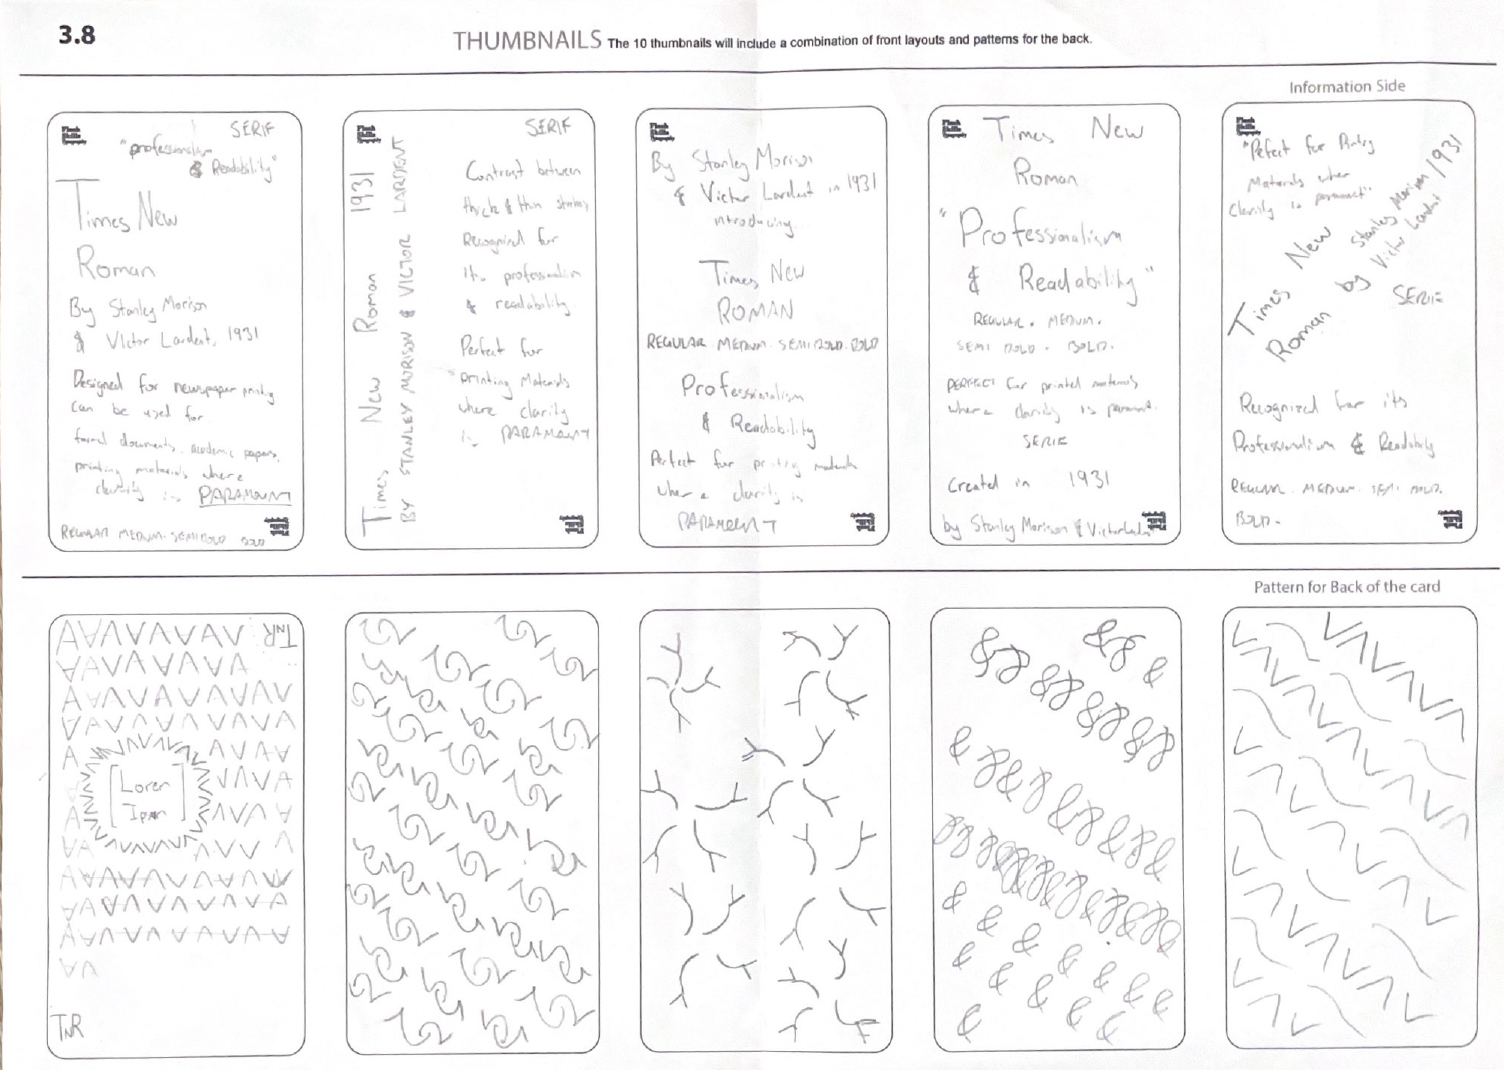 3.8
THUMBNAILS The 10 thumbnails will include a combination of front layouts and patterns for the back.
Information Side
SERIF
"professionalism
& Readability"
Times New
Roman
By Stanley Morison
& Victor Lardent, 1931
Designed for newspaper printing
can be used for
formal documents, academic papers,
printing materials where
clarity is PARAMOUNT
REGULAR MEDIUM. SEMIBOLD BOLD
Times New Roman 1931
BY STANLEY MORISON & VICTOR LARDENT
SERIF
Contrast between
thick & thin strokes
Recognized for
its professionalism
& readability
Perfect for
"printing Materials
where clarity
is PARAMOUNT
By Stanley Morison
& Victor Lardent in 1931
introducing
Times New
ROMAN
REGULAR. MEDIUM. SEMIBOLD. BOLD
Professionalism
& Readability
Perfect for printing materials
where clarity is
PARAMOUNT
Times New
Roman
"Professionalism
& Readability"
REGULAR. MEDIUM.
SEMI BOLD. BOLD.
PERFECT for printed materials
where clarity is paramount.
SERIF
Created in 1931
by Stanley Morison & Victor
"Pefect for
Materials when
Clarity is paramount".
Times New
Roman by
Stanley Morison / 1931
Victor Lardent
SERIF
Recognized for its
Professionalism & Readability
REGULAR. MEDIUM. SEMI BOLD.
BOLD.
Pattern for Back of the card
TNR
[Lorem
Ipsum]
TNR